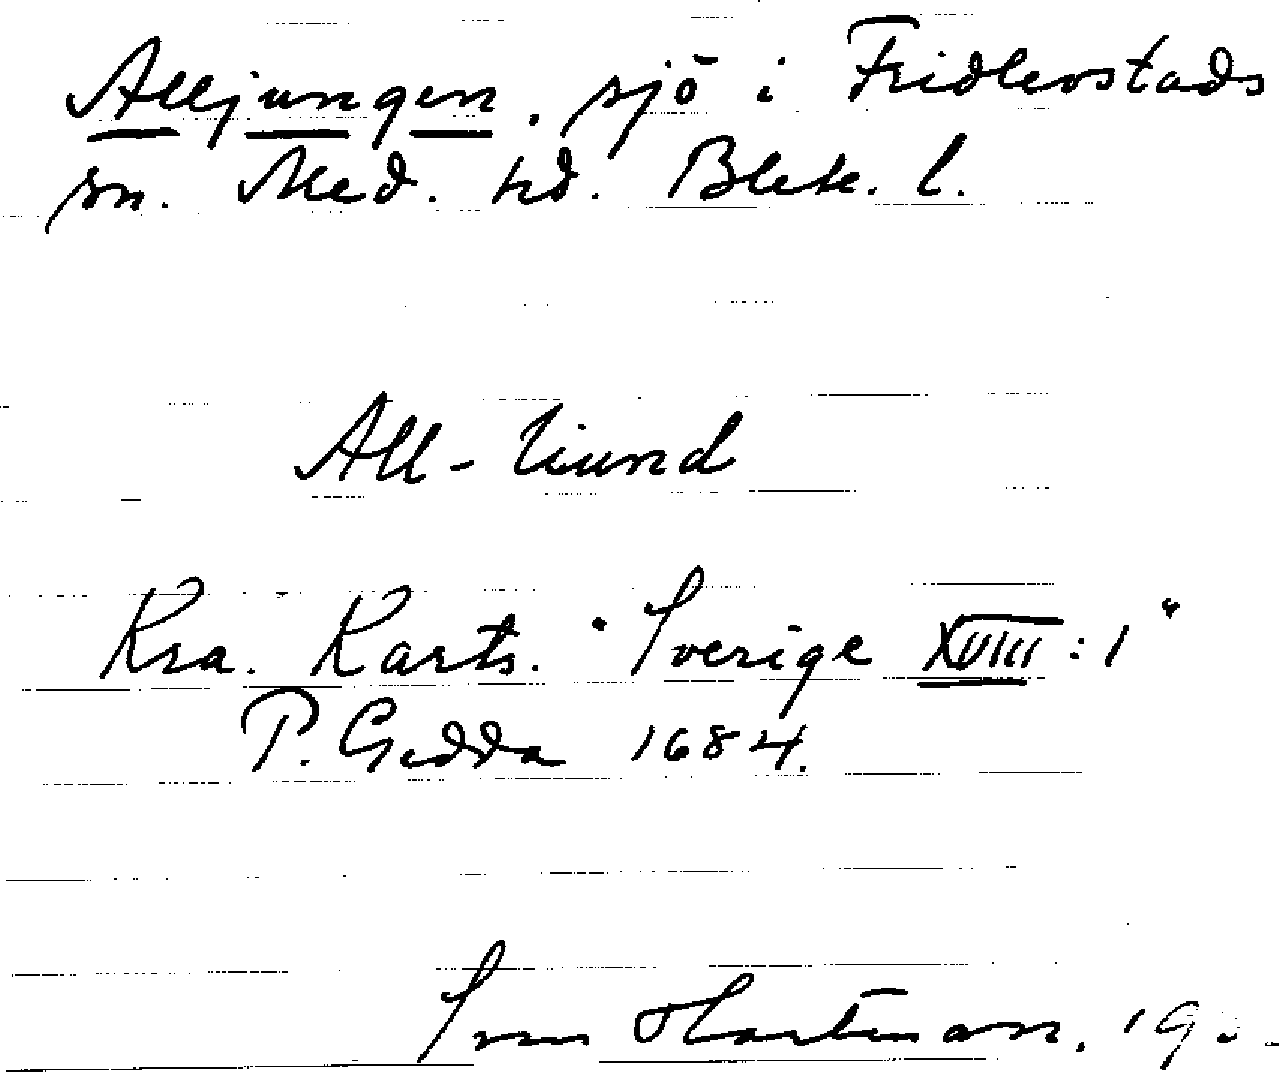 Alljungen. sjö i Fridlevstads
sn. Med. hd. Blek. l.
All-Liund
Kra. Karts. "Sverige XVIIII:1"
P. Gedda 1684.
Sven Hartman. 19